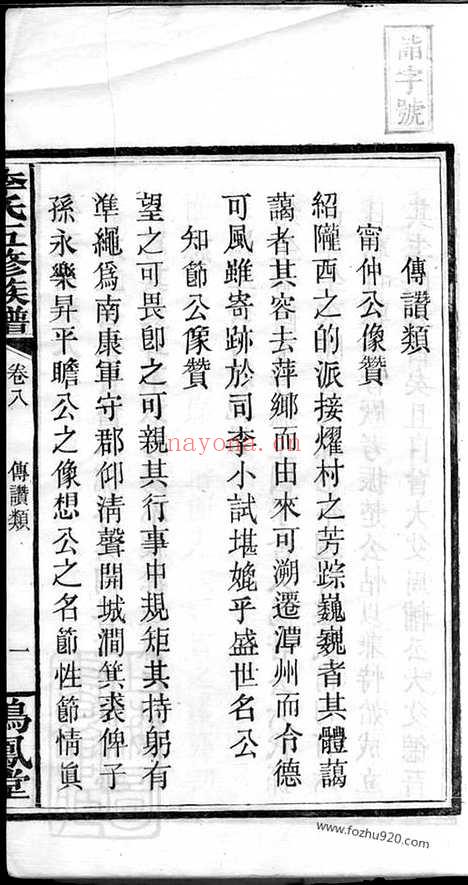 詣字號
傳讚類
甯仲公像赞
紹隴西之的派接燿村之芳踪巍巍者其體藹
藹者其容去萍鄉而由來可溯遷潭州而令德
可風雖寄跡於司李小試堪媲乎盛世名公
知節公像赞
望之可畏卽之可親其行事中規矩其持躬有
準繩爲南康軍守郡仰淸聲開城澗箕裘俾子
孫永樂昇平瞻公之像想公之名節性節情眞
李氏五修族譜
卷八
傳讚類
一
鳴鳳堂
nayona.cn
www.fozhu920.com